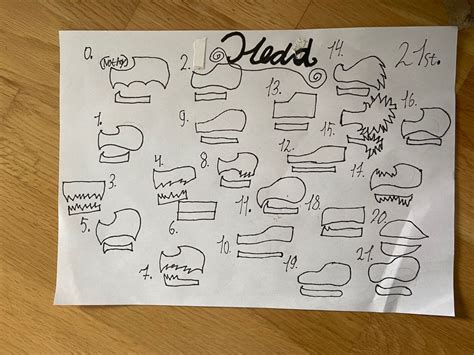 0.
2.
Head
14.
21st.
13.
16.
1.
9.
15.
12.
3.
4.
8.
17.
5.
6.
11.
18.
20.
7.
10.
19.
21.